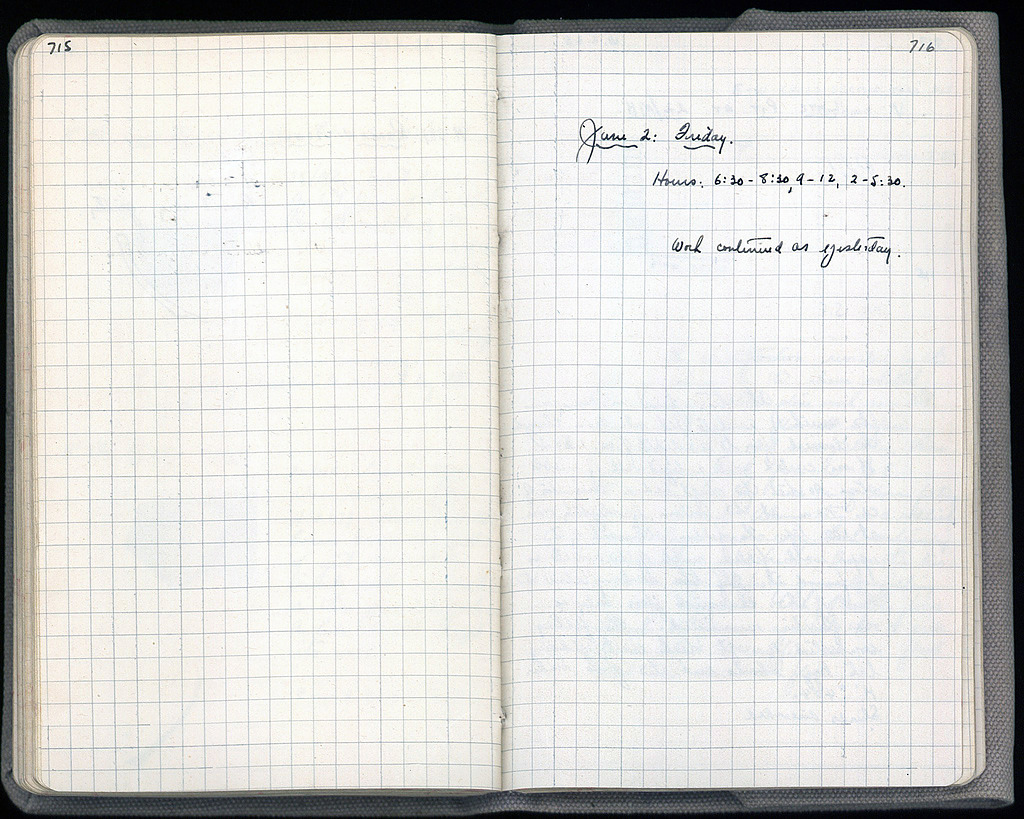 715
716
June 2: Friday.
Hours: 6:30 - 8:30, 9 - 12, 2 - 5:30.
Work continued as yesterday.